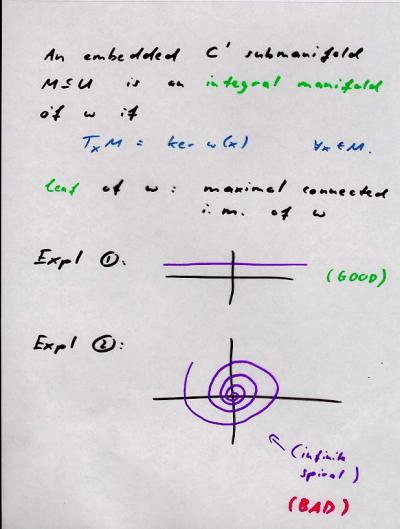 An embedded C' submanifold
M ⊆ U is an integral manifold
of ω if
TₓM = ker ω(x) ∀x ∈ M.
leaf of ω: maximal connected
i.m. of ω
Expl ①:
(GOOD)
Expl ②:
(infinite
spiral)
(BAD)